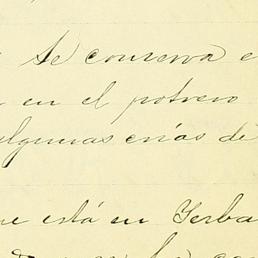 Se conserva e
en el potrero
algunas crías de
ue está en Yerba